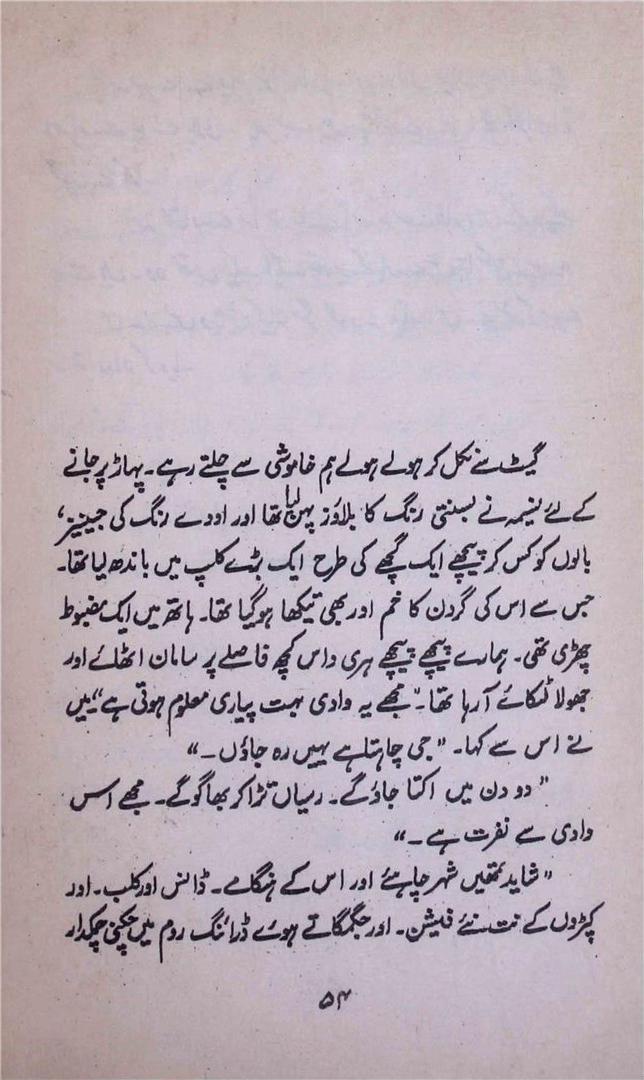 گیٹ سے نکل کر ہولے ہولے ہم خاموشی سے چلتے رہے۔ پہاڑ پر جانے
کے لئے نسیمہ نے بسنتی رنگ کا بلاؤز پہن لیا تھا اور اودے رنگ کی جینیز،
بالوں کو کس کر پیچھے ایک گچھے کی طرح ایک بڑے کلپ میں باندھ لیا تھا۔
جس سے اس کی گردن کا خم اور بھی تیکھا ہو گیا تھا۔ ہاتھ میں ایک مضبوط
چھڑی تھی۔ ہمارے پیچھے پیچھے ہری داس کچھ فاصلے پر سامان اٹھائے اور
جھولا لٹکائے آ رہا تھا۔ "مجھے یہ وادی بہت پیاری معلوم ہوتی ہے" میں
نے اس سے کہا۔ "جی چاہتا ہے یہیں رہ جاؤں ۔"
"دو دن میں اکتا جاؤ گے۔ رسیاں تڑا کر بھاگو گے۔ مجھے اس
وادی سے نفرت ہے ۔"
"شاید تمھیں شہر چاہئے اور اس کے ہنگامے۔ ڈانس اور کلب۔ اور
کپڑوں کے نت نئے فیشن۔ اور جگمگاتے ہوئے ڈرائنگ روم میں چکنی چمکدار
۵۴